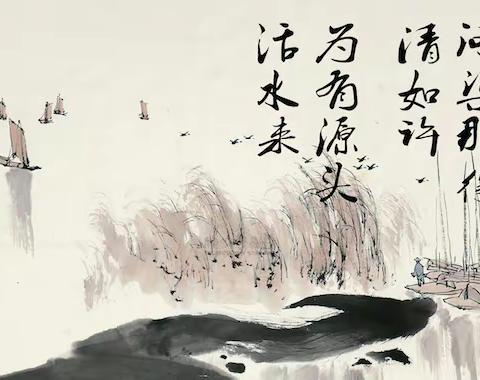 渠那
清如许
为有源头
活水来